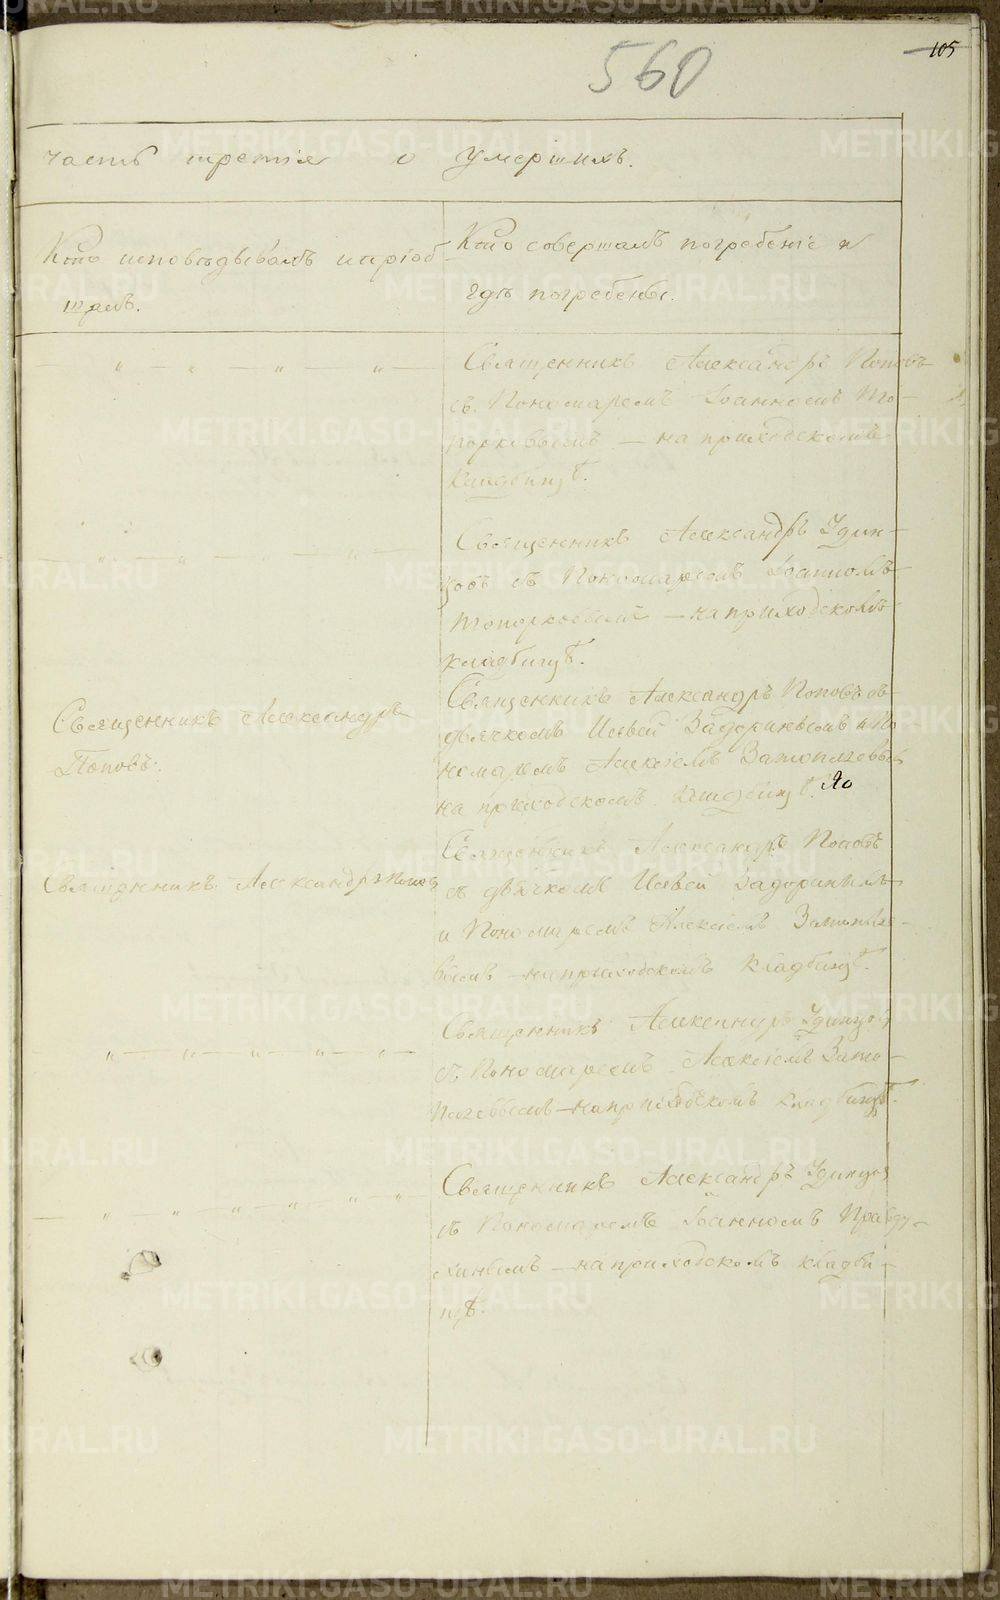 105
560
часть третія о умершихъ.
Кто исповѣдывалъ и пріоб
щалъ.
Кто совершалъ погребеніе и
гдѣ погребены.
Священникъ Александръ Поповъ
съ Пономаремъ Іоанномъ То-
порковымъ — на приходскомъ
кладбищѣ.
Священникъ Александръ Удин-
цовъ съ Пономаремъ Іоанномъ
Топорковымъ — на приходскомъ
кладбищѣ.
Священникъ Александръ
Поповъ.
Священникъ Александръ Поповъ съ
дьячкомъ Іевей Задоринымъ и По
номаремъ Алексіемъ Затопляевым
на приходскомъ кладбищѣ.
Священникъ Александръ Попов
Священникъ Александръ Поповъ
съ дьячкомъ Іевей Задоринымъ
и Пономаремъ Алексіемъ
вымъ — на приходскомъ кладбищѣ.
Священникъ Александръ Удинцов
съ Пономаремъ Алексіемъ Зато-
— на приходскомъ кладбищѣ.
Священникъ Александръ Удинцов
съ Пономаремъ Іоанномъ Правду-
хинымъ — на приходскомъ кладби-
щѣ.
METRIKI.GASO-URAL.RU